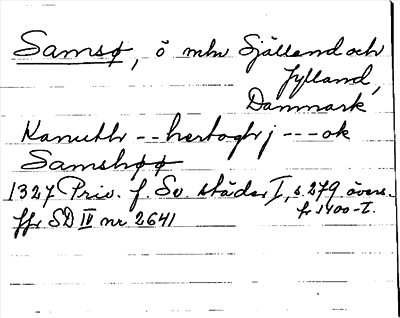 Samsø, ö mln Själland och
Jylland,
Danmark
Kanuthr -- hertoghr j --- ok
Samshøø
1327 Priv. f. Sv. städer I, s. 279 övers.
fr. 1400-t.
ffr SD IV nr 2641